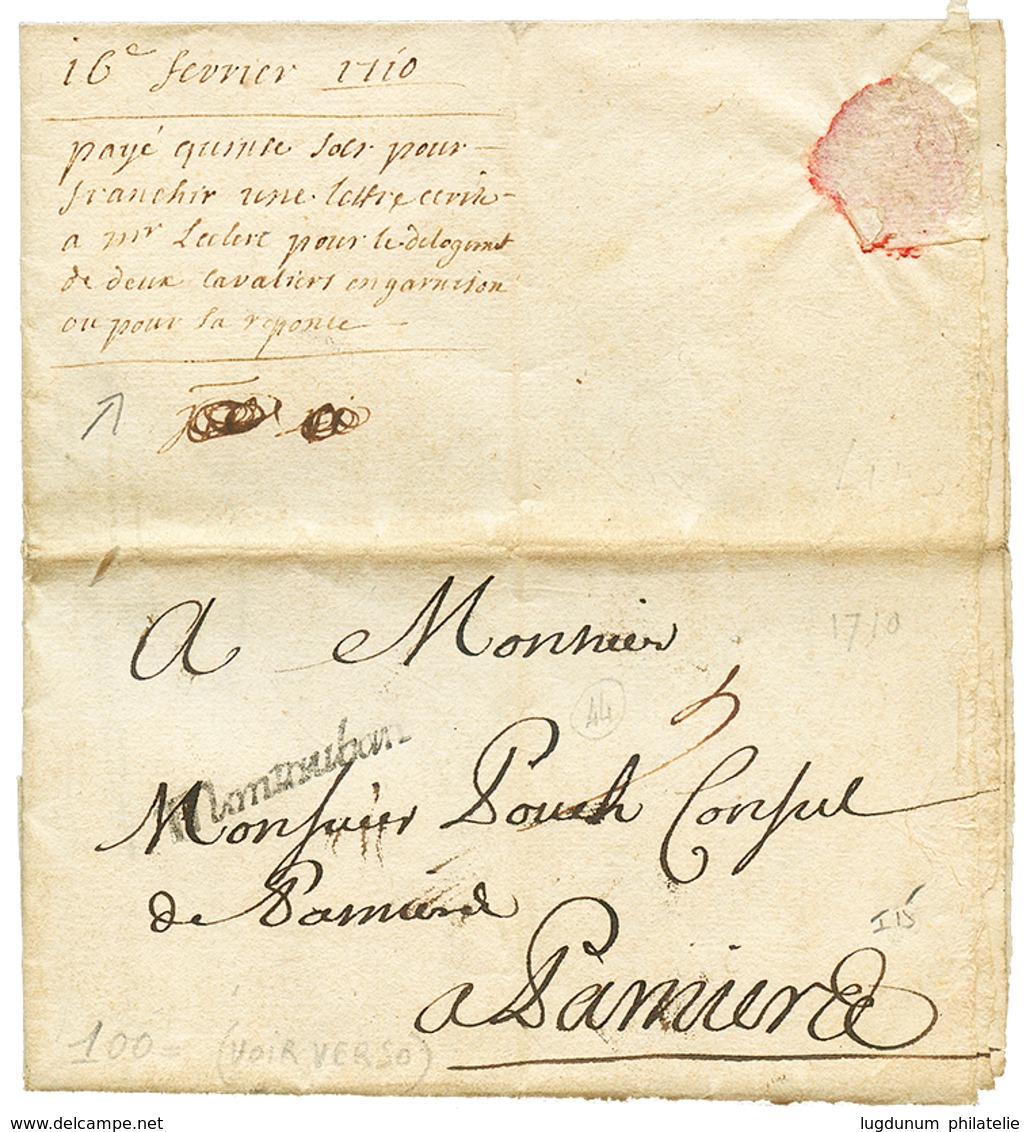 16e fevrier 1710
payé quinse sols pour
franchir une lettre ecrite
a mr Leclerc pour le delogemt
de deux cavaliers en garnison
ou pour la reponce
A Monsieur
1710
44
Montauban
Monsieur Pouch Consul
de Pamiers
I 15
a Pamiers
100 = (VOIR VERSO)
lugdunum philatelie